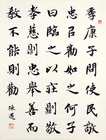 季康子問使民敬
忠以勸如之何子
曰臨之以莊則敬
孝慈則忠舉善而
教不能則勸